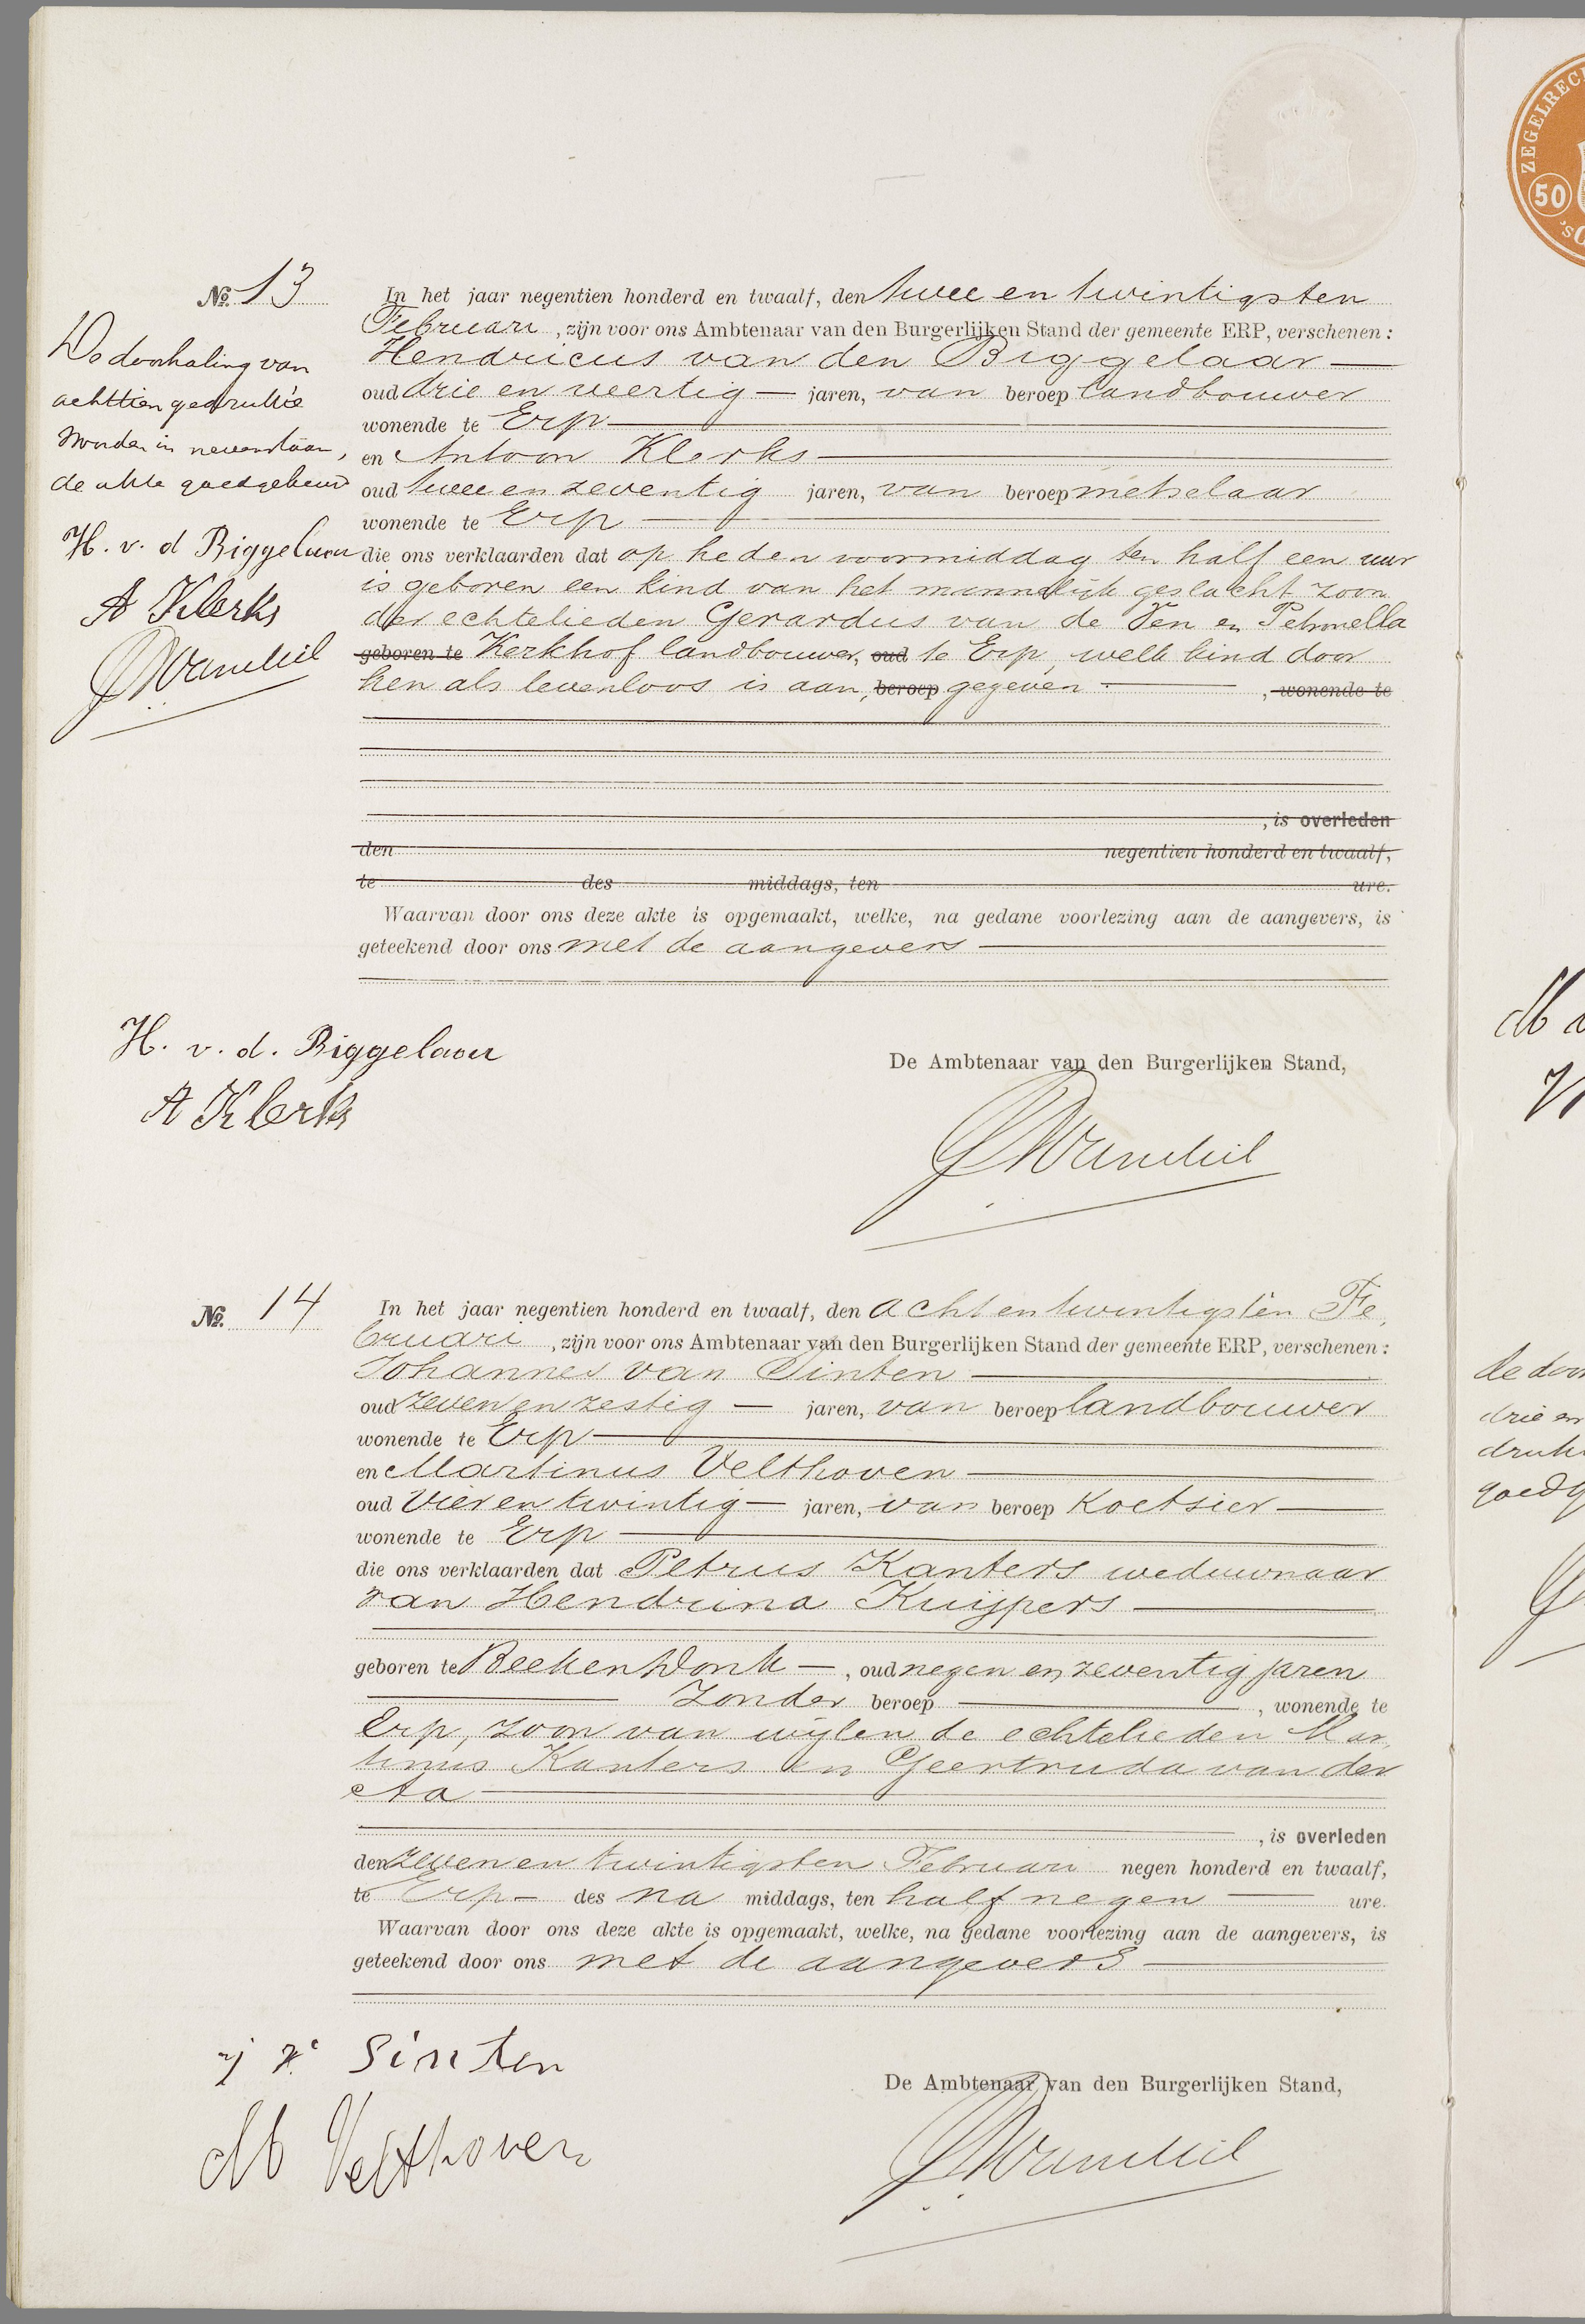 No. 13
In het jaar negentien honderd en twaalf, den twee en twintigsten
Februari, zijn voor ons Ambtenaar van den Burgerlijken Stand der gemeente ERP, verschenen:
Hendricus van den Biggelaar
oud drie en veertig jaren, van beroep landbouwer
wonende te Erp
en Antoon Klerks
oud twee en zeventig jaren, van beroep metselaar
wonende te Erp
die ons verklaarden dat op heden voormiddag ten half een uur
is geboren een kind van het mannelijk geslacht zoon
der echtelieden Gerardus van de Ven en Petronella
geboren te Kerkhof landbouwer, oud te Erp, welk kind door
hen als levenloos is aan, beroep gegeven, wonende te
, is overleden
den negentien honderd en twaalf,
te des middags, ten ure.
Waarvan door ons deze akte is opgemaakt, welke, na gedane voorlezing aan de aangevers, is
geteekend door ons met de aangevers
De doorhaling van
achttien gedrukte
woorden in nevenstaan,
de akte goedgekeurd
H. v. d Biggelaar
A Klerks
H. v. d. Biggelaar
A Klerks
De Ambtenaar van den Burgerlijken Stand,
No. 14
In het jaar negentien honderd en twaalf, den acht en twintigsten Fe,
bruari, zijn voor ons Ambtenaar van den Burgerlijken Stand der gemeente ERP, verschenen:
Johannes van Sinten
oud zeven en zestig jaren, van beroep landbouwer
wonende te Erp
en Martinus Velthoven
oud vier en twintig jaren, van beroep Koetsier
wonende te Erp
die ons verklaarden dat Petrus Kanters weduwnaar
van Hendrina Kuijpers
geboren te Beek en Donk, oud negen en zeventig jaren
Zonder beroep, wonende te
Erp, zoon van wijlen de echtelieden Mar,
tinus Kanters en Geertruda van der
Aa
, is overleden
den zeven en twintigsten Februari negen honderd en twaalf,
te Erp des na middags, ten half negen ure.
Waarvan door ons deze akte is opgemaakt, welke, na gedane voorlezing aan de aangevers, is
geteekend door ons met de aangevers
j v. Sinten
M Velthoven
De Ambtenaar van den Burgerlijken Stand,
ZEGELRECH
50
de door
drie en
druk
goedg